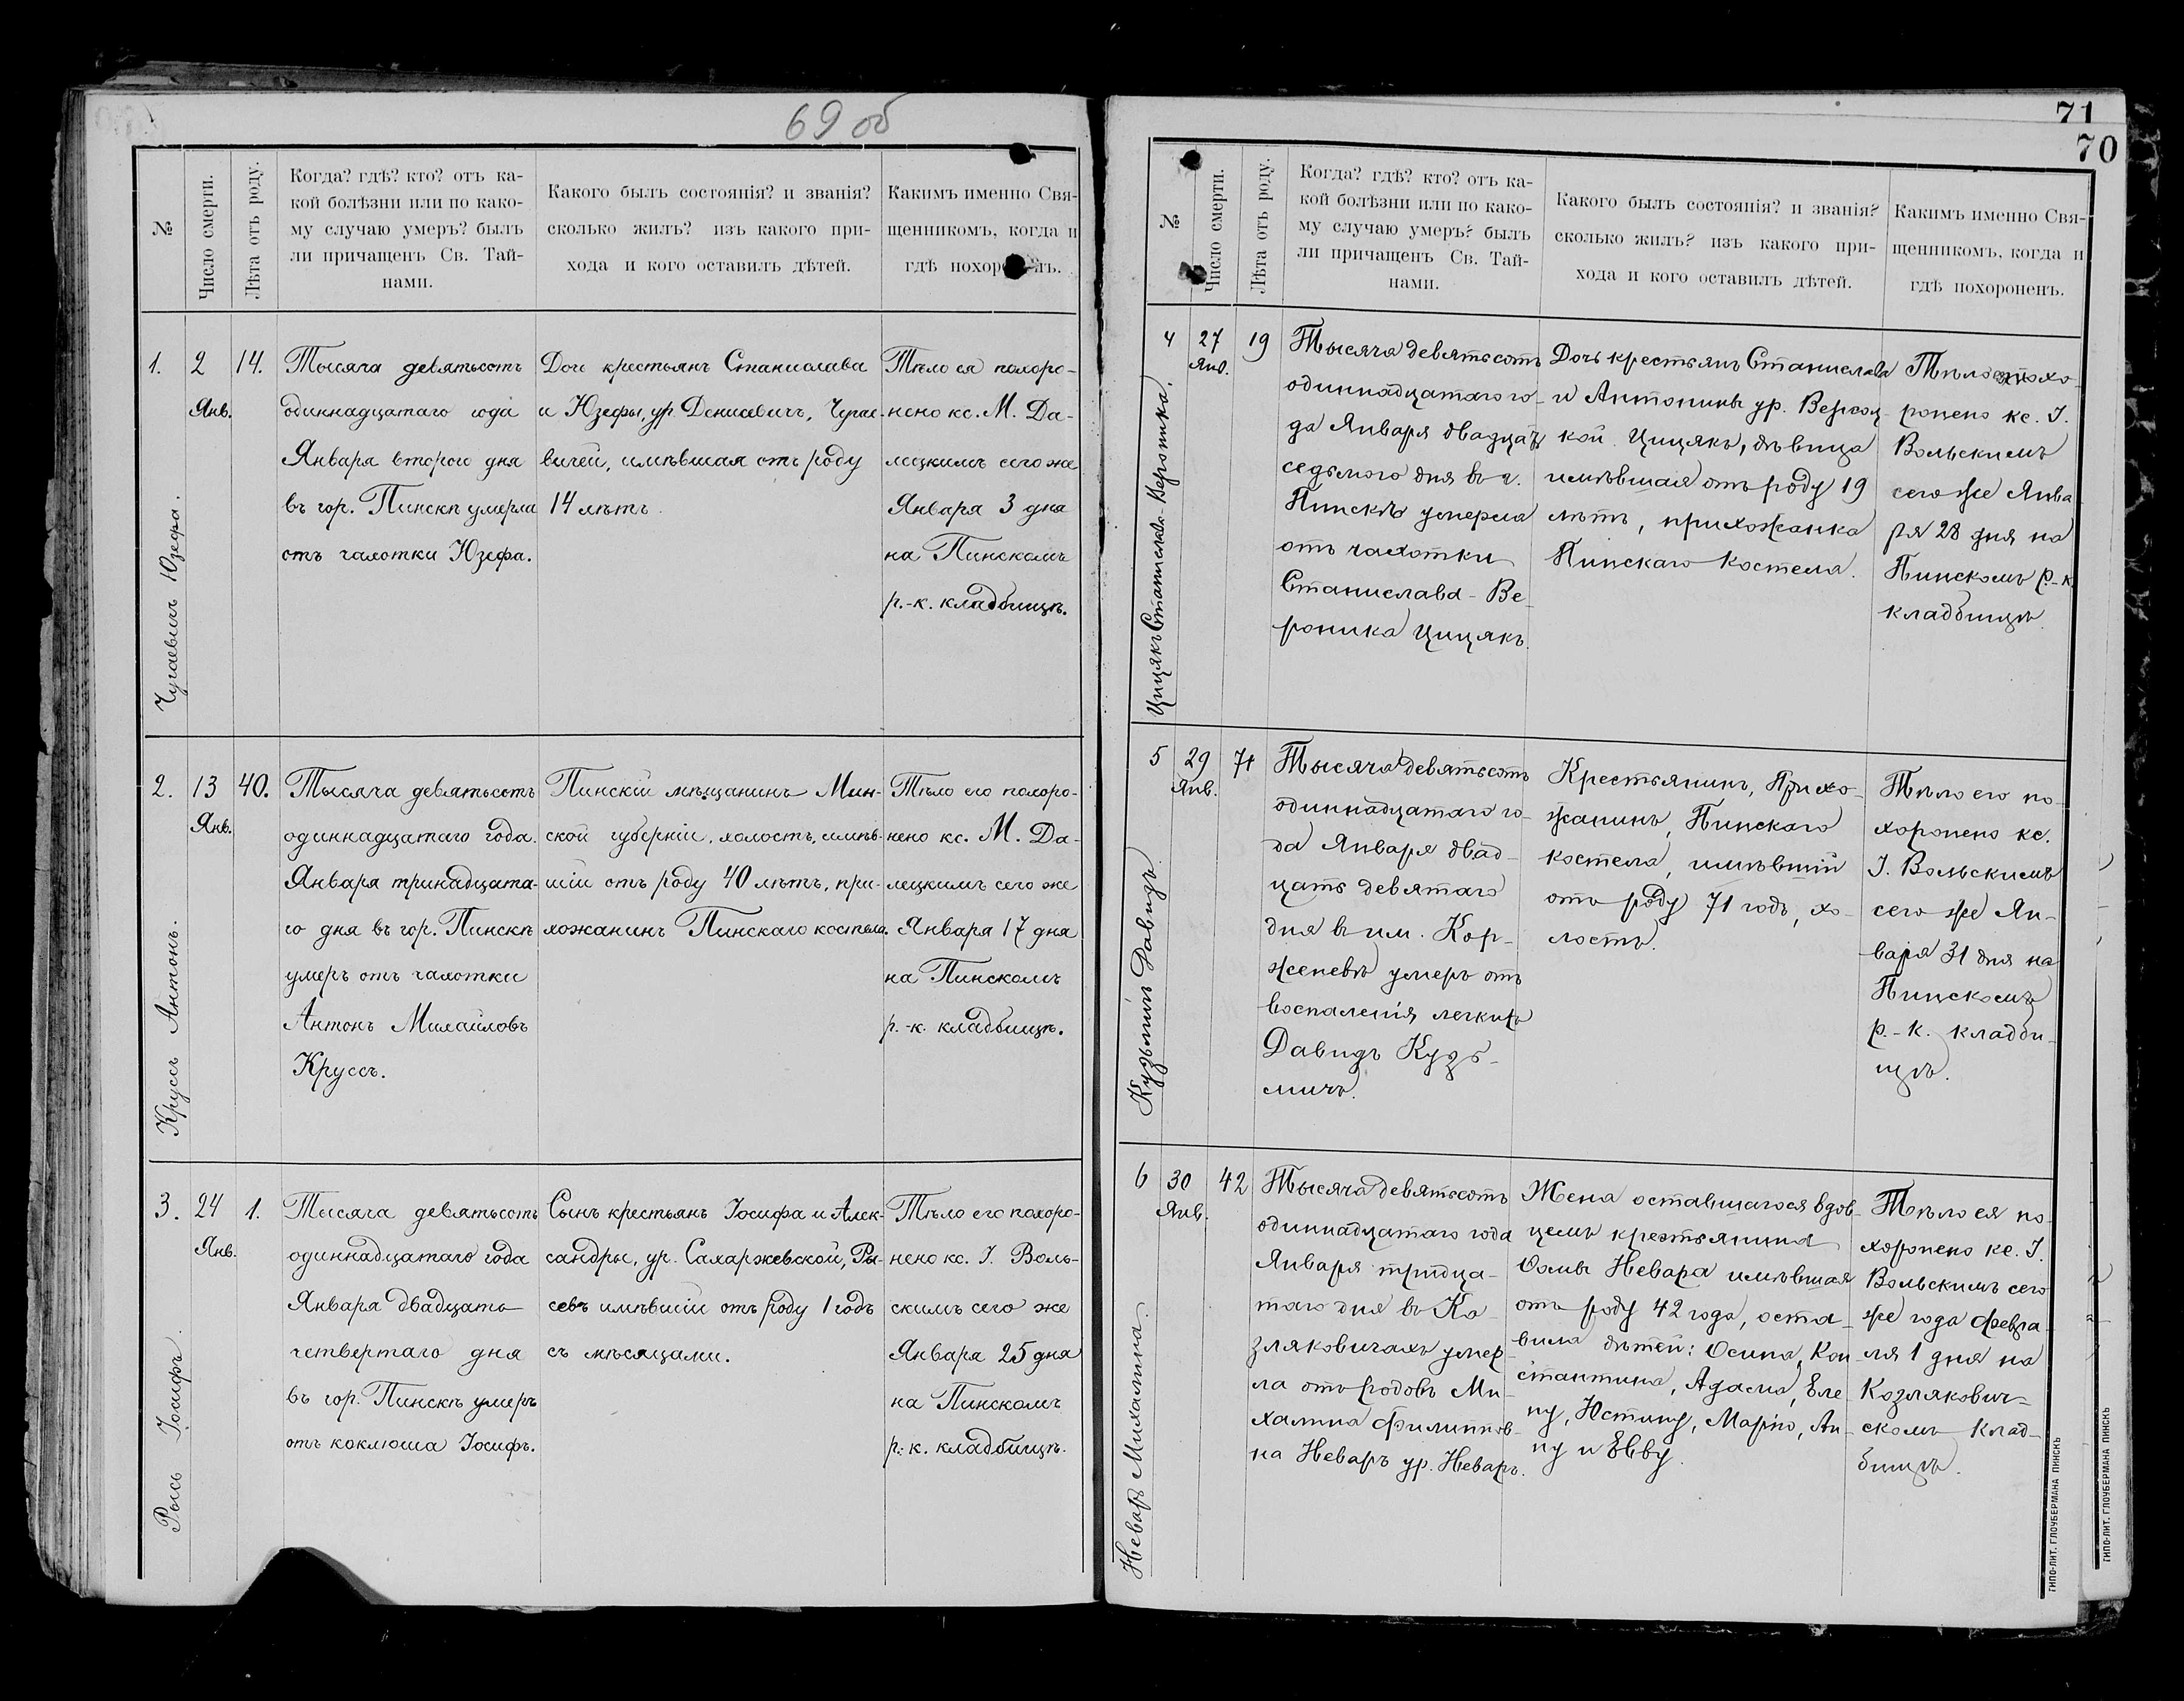 69 об
№
Число смерти.
Лѣта отъ роду.
Когда? гдѣ? кто? отъ ка-
кой болѣзни или по како-
му случаю умеръ? былъ
ли причащенъ Св. Тай-
нами.
Какого былъ состоянія? и званія?
сколько жилъ? изъ какого при-
хода и кого оставилъ дѣтей.
Какимъ именно Свя-
щенникомъ, когда и
гдѣ похороненъ.
1.
Чугаевичъ Юзефа.
2
Янв.
14.
Тысяча девятьсотъ
одиннадцатаго года
Января второго дня
въ гор. Пинскѣ умерла
отъ чахотки Юзефа.
Дочь крестьянъ Станислава
и Юзефы, ур. Денисевичъ, Чугае-
вичей, имѣвшая отъ роду
14 лѣтъ.
Тѣло ея похоро-
нено кс. М. Да-
лецкимъ сего же
Января 3 дня
на Пинскомъ
р.-к. кладбищѣ.
2.
Круссъ Антонъ.
13
Янв.
40.
Тысяча девятьсотъ
одиннадцатаго года.
Января тринадцата-
го дня въ гор. Пинскѣ
умеръ отъ чахотки
Антонъ Михайловъ
Круссъ.
Пинскій мѣщанинъ Мин-
ской губерніи, холостъ, имѣв-
шій отъ роду 40 лѣтъ, при-
хожанинъ Пинскаго костела.
Тѣло его похоро-
нено кс. М. Да-
лецкимъ сего же
Января 17 дня
на Пинскомъ
р.-к. кладбищѣ.
3.
Рысь Іосифъ.
24
Янв.
1.
Тысяча девятьсотъ
одиннадцатаго года
Января двадцать
четвертаго дня
въ гор. Пинскѣ умеръ
отъ коклюша Іосифъ.
Сынъ крестьянъ Іосифа и Алек-
сандры, ур. Сахаржевской, Ры-
севъ имѣвшій отъ роду 1 годъ
съ мѣсяцами.
Тѣло его похоро-
нено кс. І. Воль-
скимъ сего же
Января 25 дня
на Пинскомъ
р.-к. кладбищѣ.
71
70
№
Число смерти.
Лѣта отъ роду.
Когда? гдѣ? кто? отъ ка-
кой болѣзни или по како-
му случаю умеръ? былъ
ли причащенъ Св. Тай-
нами.
Какого былъ состоянія? и званія?
сколько жилъ? изъ какого при-
хода и кого оставилъ дѣтей.
Какимъ именно Свя-
щенникомъ, когда и
гдѣ похороненъ.
4
Цицякъ Станислава-Вероника.
27
Янв.
19
Тысяча девятьсотъ
одиннадцатаго го-
да Января двадцать
седьмого дня въ г.
Пинскѣ умерла
отъ чахотки
Станислава-Ве-
роника Цицякъ.
Дочь крестьянъ Станислава
и Антонины ур.
кой Цицякъ, дѣвица
имѣвшая отъ роду 19
лѣтъ, прихожанка
Пинскаго костела.
Тѣло ея похо-
ронено кс. І.
Вольскимъ
сего же Янва
ря 28 дня на
Пинскомъ р.-к
кладбищѣ
5
Кузьмичъ Давидъ.
29
Янв.
71
Тысяча девятьсотъ
одиннадцатаго го-
да Января двад-
цать девятаго
дня въ им. Кор-
женевѣ умеръ отъ
воспаленія легкихъ
Давидъ Кузь-
мичъ.
Крестьянинъ, Прихо-
жанинъ, Пинскаго
костела, имѣвшій
отъ роду 71 годъ, хо-
лостъ.
Тѣло его по-
хоронено кс.
І. Вольскимъ
сего же Ян-
варя 31 дня на
Пинскомъ
р.-к. кладби-
щѣ.
6
Неваръ Михалина.
30
Янв.
42
Тысяча девятьсотъ
одиннадцатаго года
Января тридца-
таго дня въ Ко-
зляковичахъ умер-
ла отъ родовъ Ми-
халина Филиппов-
на Неваръ ур. Неваръ.
Жена оставшагося вдов-
цемъ крестьянина
Ѳомы Невара имѣвшая
отъ роду 42 года, оста-
вила дѣтей: Осипа, Кон-
стантина, Адама, Еле
ну, Юстину, Марію, Ан-
ну и Евву.
Тѣло ея по-
хоронено кс. І.
Вольскимъ сего
же года Февра-
ля 1 дня на
Козлякович-
скомъ клад-
бищѣ.
ТИПО-ЛИТ. ГЛОУБЕРМАНА ПИНСКЪ
ТИПО-ЛИТ. ГЛОУБЕРМАНА ПИНСКЪ